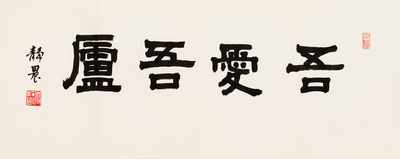 吾愛吾廬
靜農